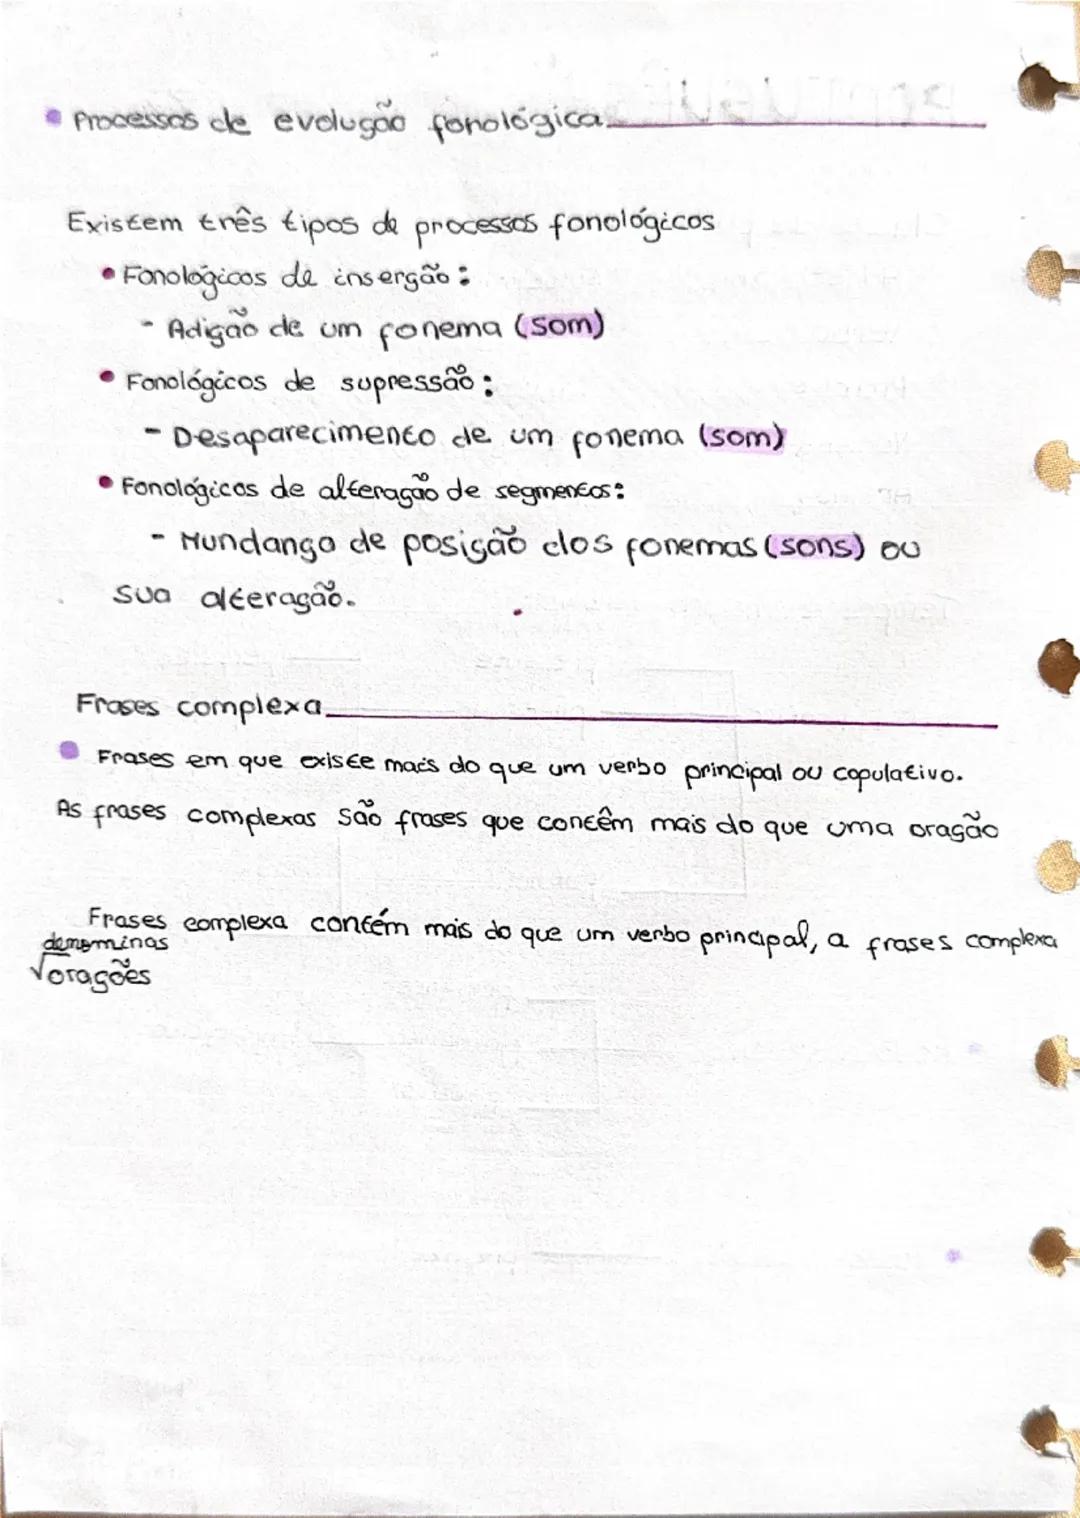 Processos de evolução fonológica
Existem três tipos de processos fonológicos
• Fonológicos de inserção:
- Adição de um fonema (som)
• Fonológicos de supressão:
- Desaparecimento de um fonema (som)
• Fonológicos de alteração de segmentos:
- Mundança de posição dos fonemas (sons) ou
sua alteração.
Frases complexa
Frases em que existe mais do que um verbo principal ou copulativo.
As frases complexas são frases que contêm mais do que uma oração
Frases complexa contém mais do que um verbo principal, a frases complexa
denominas
√orações